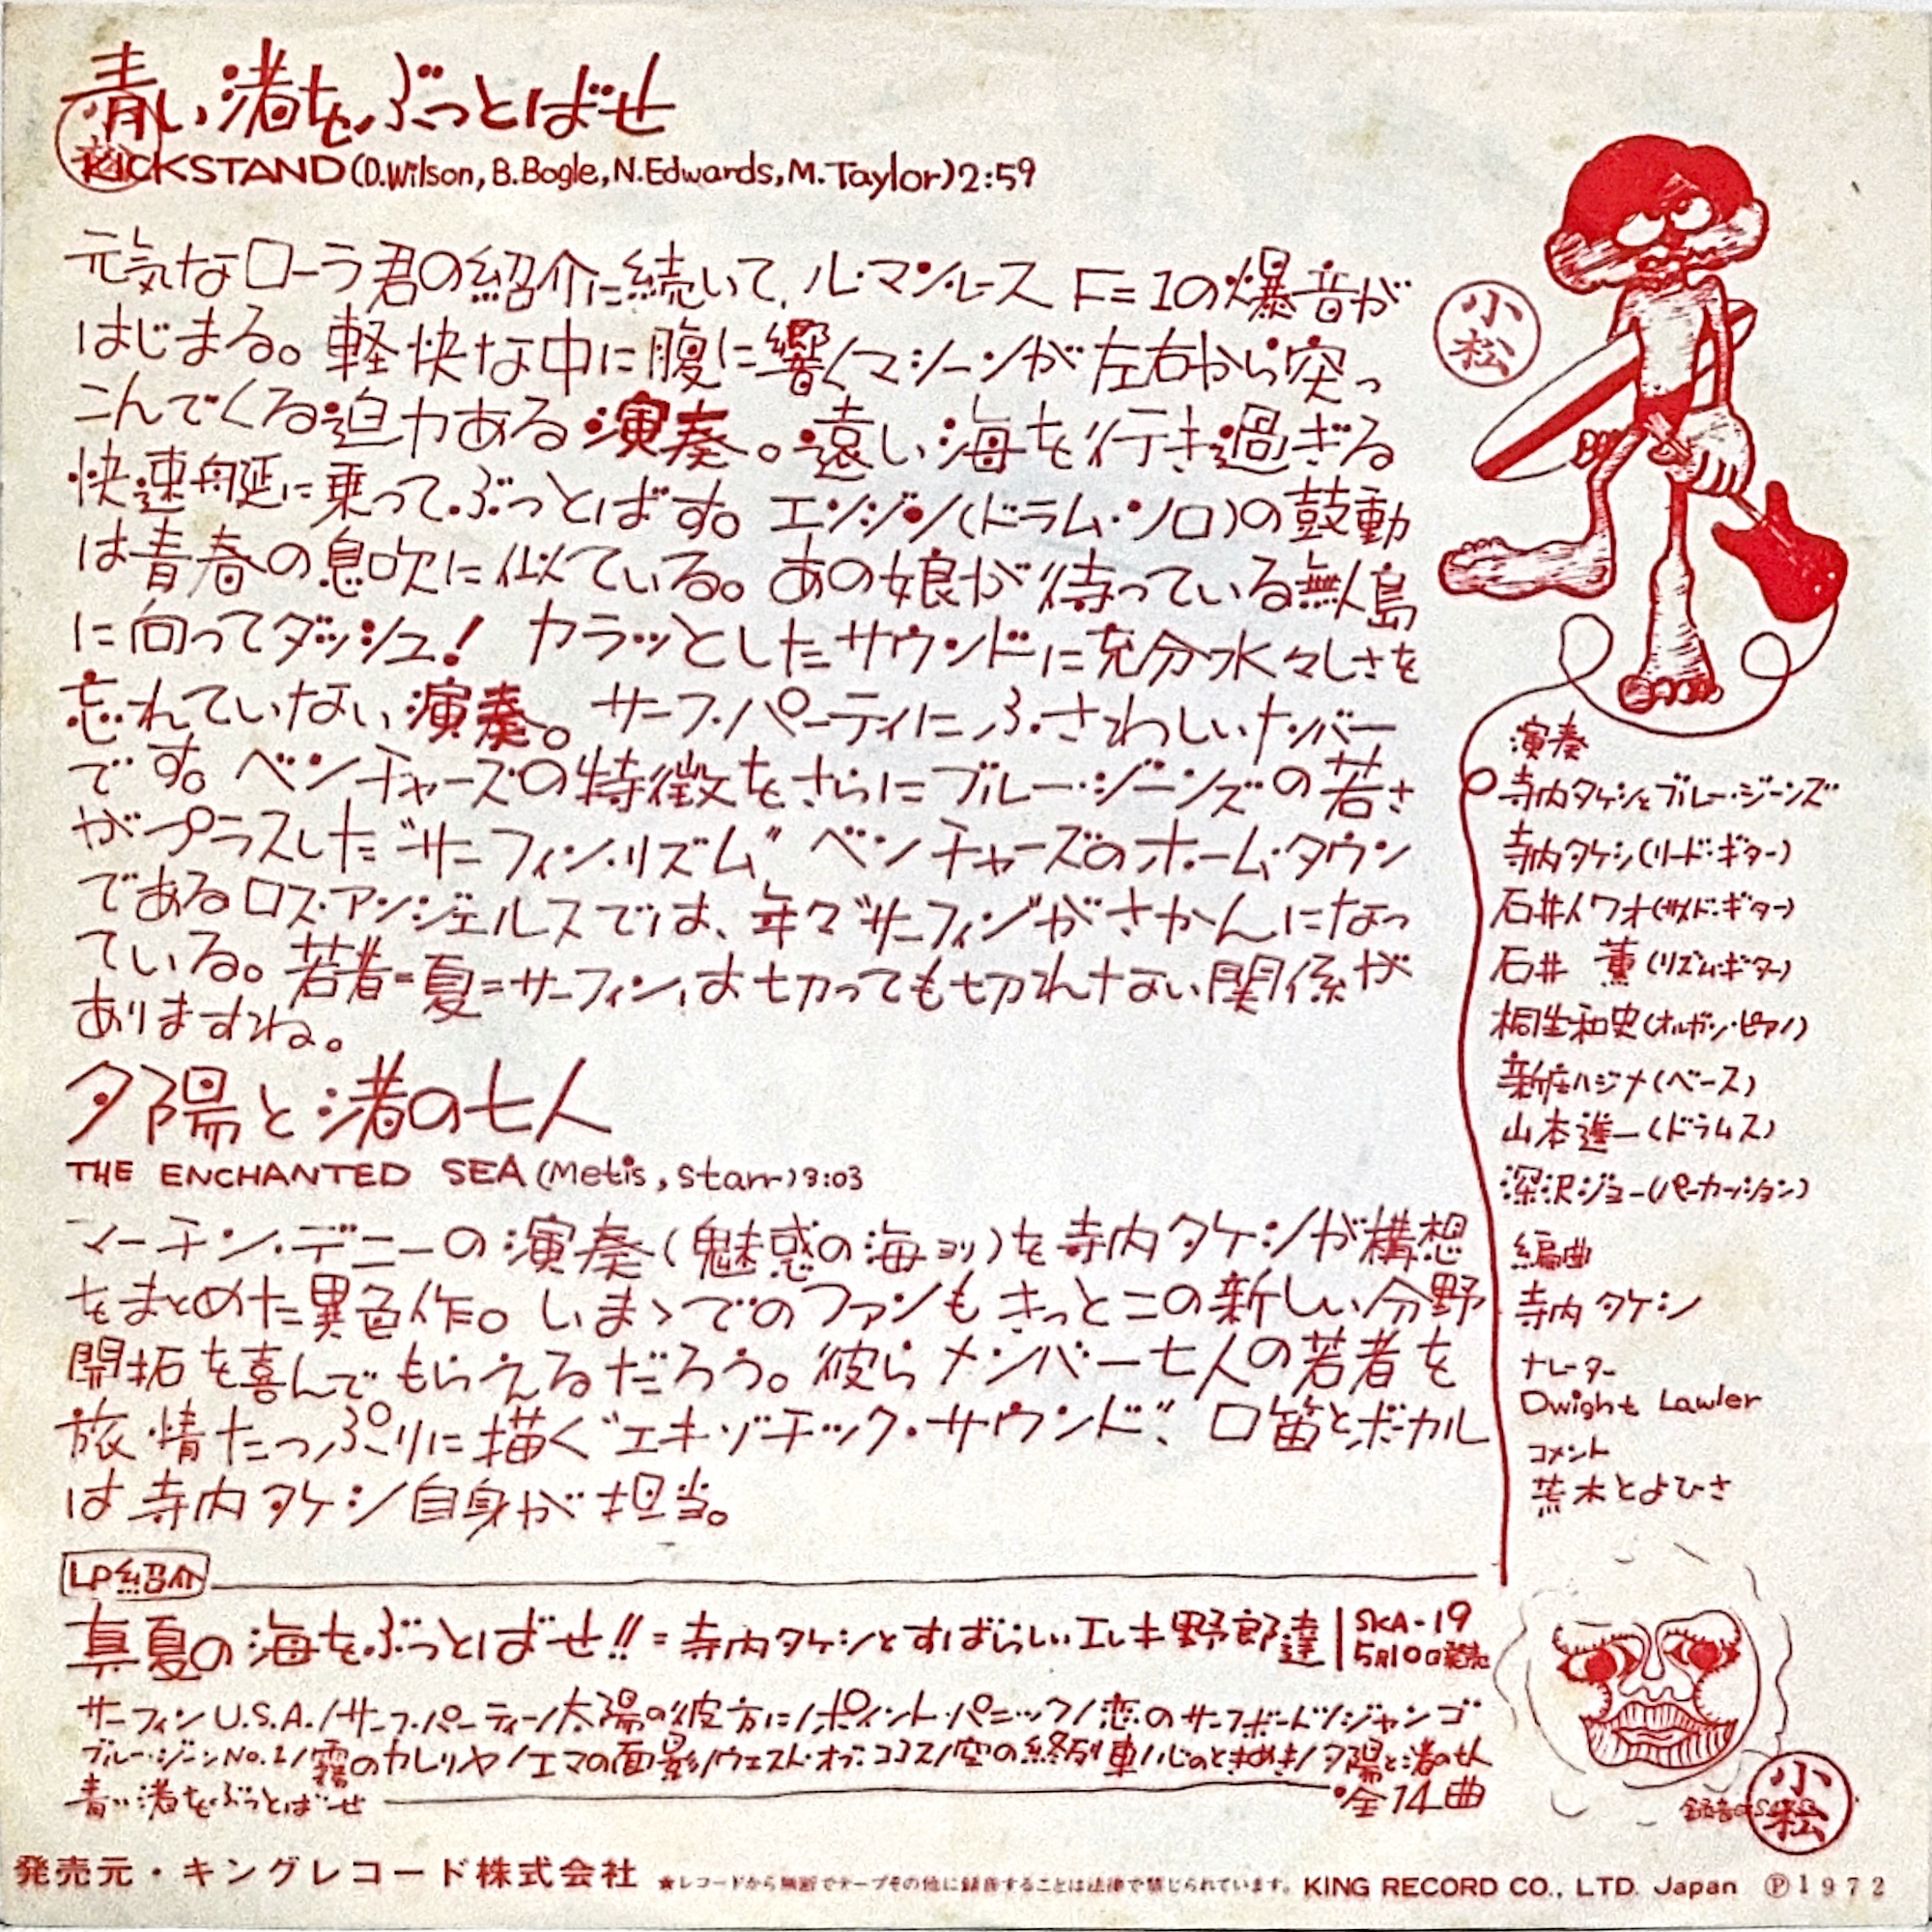 青い渚をぶっとばせ
KICKSTAND(D.Wilson, B.Bogle, N.Edwards, M.Taylor)2:59
元気なローラ君の紹介に続いて、ル・マン・レース F=1の爆音が
はじまる。軽快な中に腹に響くマシーンが左右から突っ
こんでくる迫力ある演奏。遠い海を行き過ぎる
快速艇に乗ってぶっとばす。エンジン(ドラム・ソロ)の鼓動
は青春の息吹に似ている。あの娘が待っている無人島
に向ってダッシュ! カラッとしたサウンドに充分水々しさを
忘れていない演奏。サーフ・パーティにふさわしいナンバー
です。ベンチャーズの特徴をさらにブルー・ジーンズの若さ
がプラスした"サーフィン・リズム" ベンチャーズのホーム・タウン
であるロス・アンジェルスでは、年々"サーフィン"がさかんになっ
ている。若者=夏=サーフィンは切っても切れない関係が
ありますね。
夕陽と渚の七人
THE ENCHANTED SEA(Metis, Starr)3:03
マーチン・デニーの演奏(魅惑の海ヨリ)を寺内タケシが構想
をまとめた異色作。いまゝでのファンもきっとこの新しい分野
開拓を喜んでもらえるだろう。彼らメンバー七人の若者を
旅情たっぷりに描く"エキゾチック・サウンド"、口笛とボーカル
は寺内タケシ自身が担当。
小松
演奏
寺内タケシとブルー・ジーンズ
寺内タケシ(リード・ギター)
石井イワオ(サイド・ギター)
石井 薫(リズム・ギター)
桐生和史(オルガン・ピアノ)
新庄ハジメ(ベース)
山本進一(ドラムス)
深沢ジョー(パーカッション)
編曲
寺内タケシ
ナレーター
Dwight Lawler
コメント
荒木とよひさ
LP紹介
真夏の海をぶっとばせ!!=寺内タケシとすばらしいエレキ野郎達|SKA-19
5月10日発売
サーフィンU.S.A./サーフ・パーティー/太陽の彼方に/ポイント・パニック/恋のサーフボード/ジャンゴ
ブルー・ジーンNo.1/霧のカレリヤ/エマの面影/ウェスト・オブ・ココス/空の終列車/心のときめき/夕陽と渚の七人
青い渚をぶっとばせ 全14曲
小松
発売元・キングレコード株式会社 ★レコードから無断でテープその他に録音することは法律で禁じられています。 KING RECORD CO., LTD. Japan Ⓟ1972